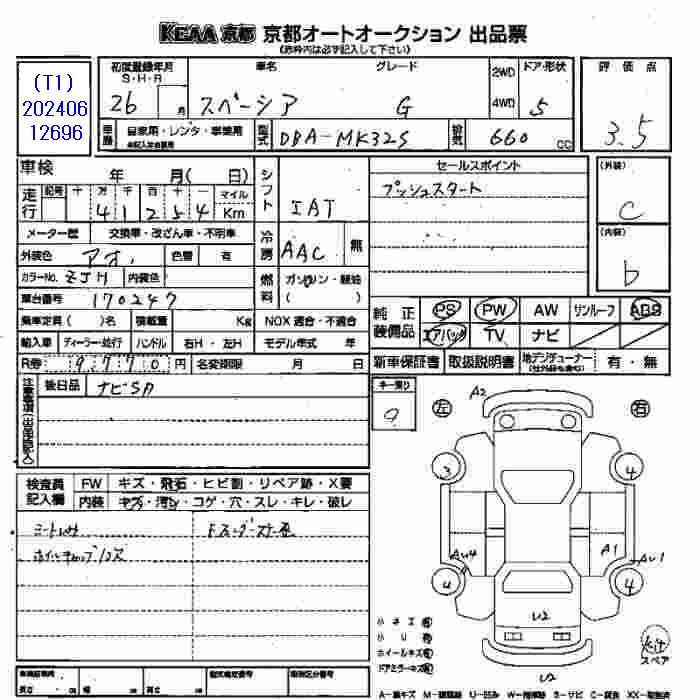 KCAA 京都 京都オートオークション 出品票
(赤枠内は必ず記入して下さい)
(T1)
202406
12696
初度登録年月
S・H・R
26 月
車名
スペーシア
グレード
G
2WD
4WD
ドア・形状
5
評価点
3.5
車歴
自家用・レンタ・事業用
型式
DBA-MK32S
排気
660 cc
車検 年 月( 日)
走行
記号 十 万 千 百 十 一 マイル
4 1 2 5 4 Km
シフト
IAT
冷房
AAC 無
セールスポイント
プッシュスタート
(外装)
C
(内装)
b
メーター歴 交換車・改ざん車・不明車
外装色 アオ 色替 有
カラーNo. ZJH 内装色
燃料
ガソリン・軽油
( )
車台番号 170247
乗車定員 ( )名 積載量 Kg NOX 適合・不適合
輸入車 ディーラー・並行 ハンドル 右H・左H モデル年式 年
R券 9770 円 名変期限 月 日
純正装備品
PS PW AW サンルーフ ABS
エアバッグ TV ナビ
新車保証書 取扱説明書 地デジチューナー 有・無
注意事項(出品店記入)
後日品 ナビSD
キー残り
9
検査員記入欄
FW キズ・飛石・ヒビ割・リペア跡・X要
内装 キズ・汚レ・コゲ・穴・スレ・キレ・破レ
シートヨゴレ
ホイルキャップキズ
左 右
A2
3 4
AU4 A1 AU1
4 4
U2
U2
小キズ有
小U有
ホイールキズ有
ドアミラーキズ有
スペア
A-線キズ U-凹み S-サビ C-腐食